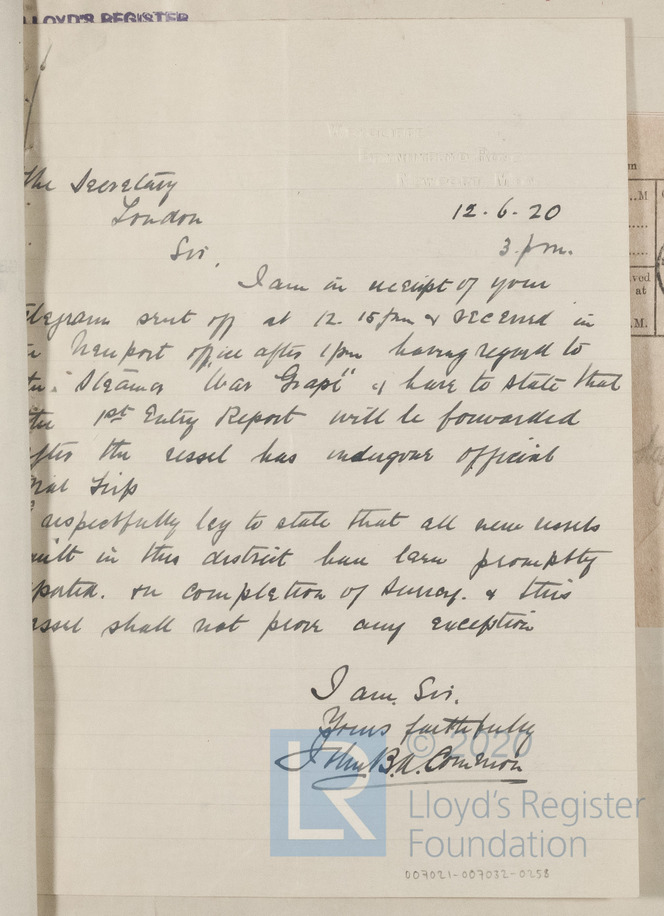 LLOYD'S REGISTER
The Secretary
London
12.6.20
Sir,
3. pm.
I am in receipt of your
telegram sent off at 12.15 pm & received in
Newport office after 1 pm having regard to
Steamer War Grape" & have to state that
the 1st Entry Report will be forwarded
after the vessel has undergone official
Trial Trip
respectfully beg to state that all new vessels
built in this district have been promptly
reported. on completion of Survey. & this
vessel shall not prove any exception
I am. Sir.
Yours faithfully
John. B. A. Comerion
© 2020
LR
Lloyd's Register
Foundation
007021-007032-0258
ved
at
.M.